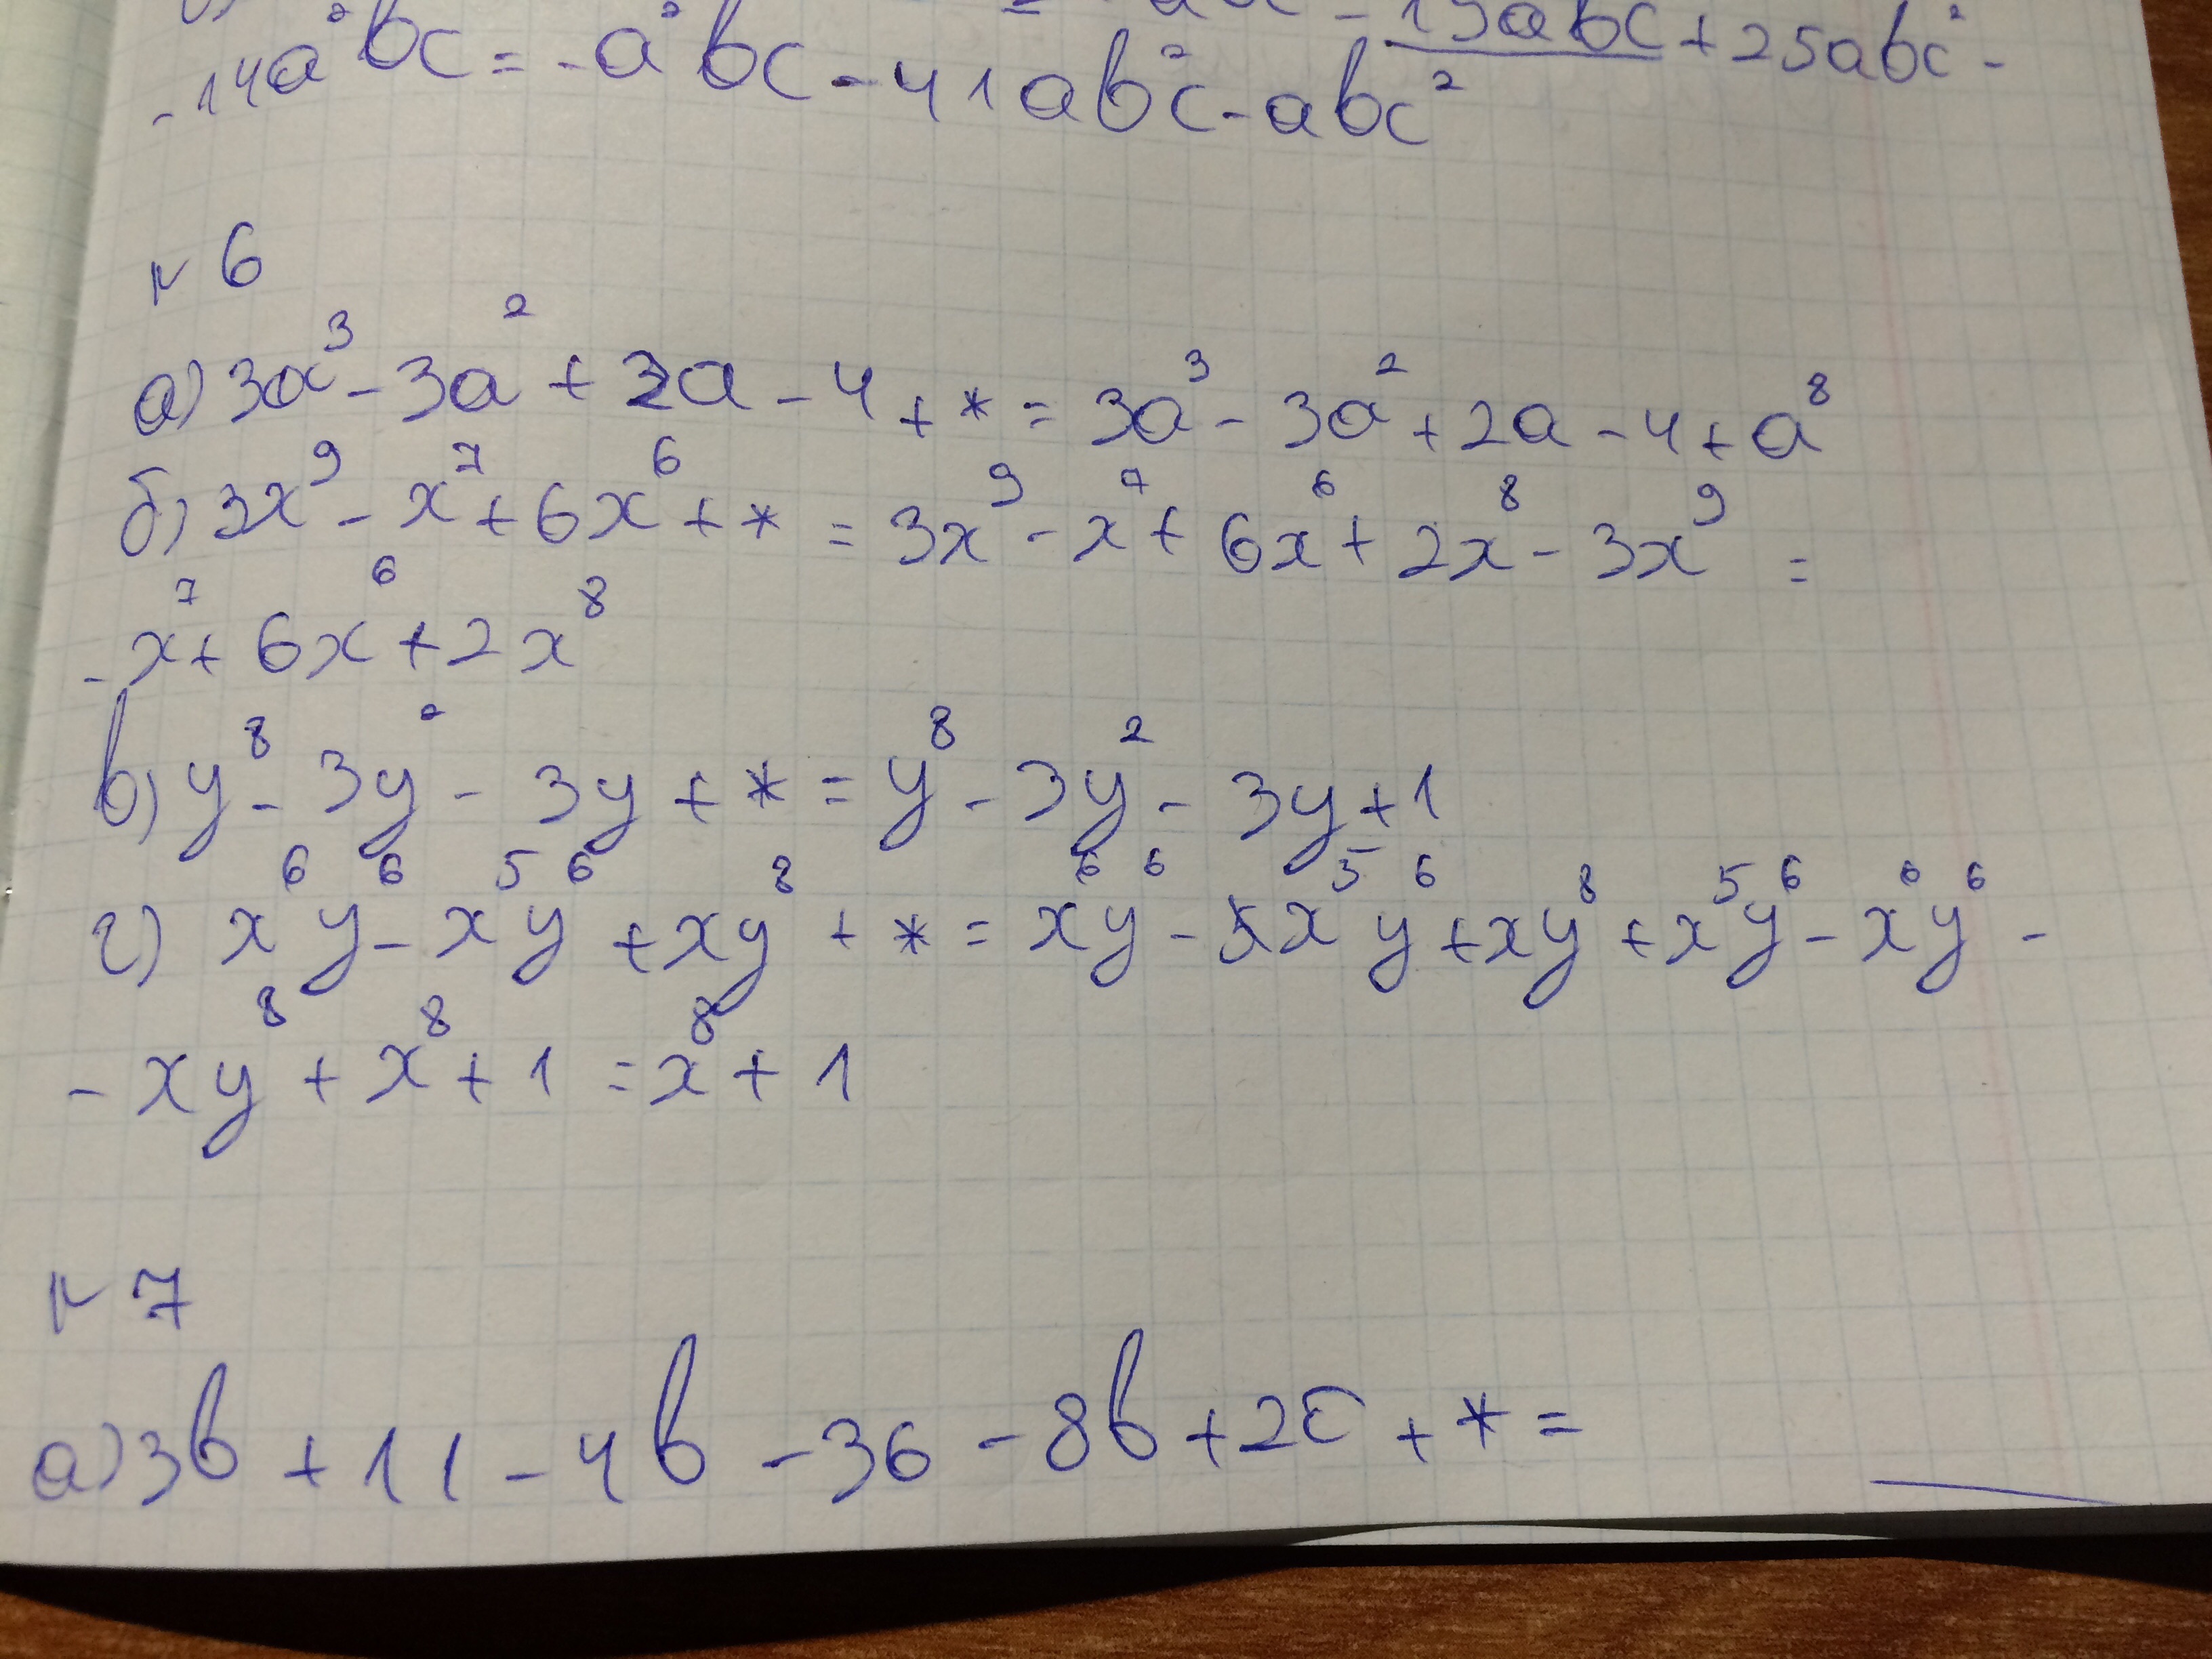 = - 15abc + 25abc² -
- 14a²bc = - a²bc - 41ab²c - abc²
№ 6
а) 3a³ - 3a² + 2a - 4 + * = 3a³ - 3a² + 2a - 4 + a⁸
б) 3x⁹ - x⁷ + 6x⁶ + * = 3x⁹ - x⁷ + 6x⁶ + 2x⁸ - 3x⁹ =
- x⁷ + 6x⁶ + 2x⁸
в) y⁸ - 3y² - 3y + * = y⁸ - 3y² - 3y + 1
г) x⁶y⁶ - x⁵y⁶ + xy⁸ + * = x⁶y⁶ - x⁵y⁶ + xy⁸ + x⁵y⁶ - x⁶y⁶ -
- xy⁸ + x⁸ + 1 = x⁸ + 1
№ 7
а) 3b + 11 - 4b - 36 - 8b + 2c + * =